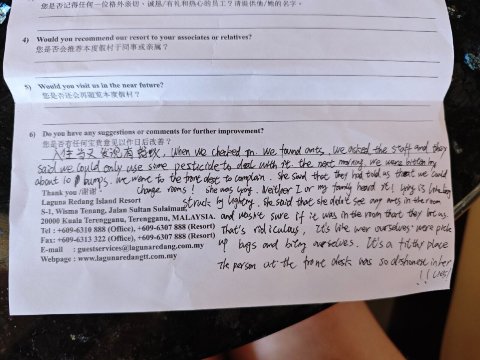 您是否记得任何一位格外亲切、诚恳/有礼和热心的员工？请提供他/她的名字。
4) Would you recommend our resort to your associates or relatives?
您是否会推荐本度假村于同事或亲属？
5) Would you visit us in the near future?
您是否还会再题览本度假村？
6) Do you have any suggestions or comments for further improvement?
您是否有任何宝贵意见以作日后改善？
入住当天发现有蚂蚁, When we checked in. we found ants, we asked the staff and they
said we could only use some pesticide to deal with it. the next morning, we were bitten by
about 10 bumps. we went to the front dest to complain. She said that they had told us that we could
change rooms! she was lying. Neither I or my family heard it! Lying is like being
struck by lightning. She said that she didn't see any ants in the room
and wasn't sure if it was in the room that they bit us.
That's ridiculous, It's like we ourselves were picke
up bugs and biting ourselves. It's a filthy place
The person at the front desk was so dishonest in her
!! lies!
Thank you /谢谢。
Laguna Redang Island Resort
S-1, Wisma Tenang, Jalan Sultan Sulaiman,
20000 Kuala Terengganu, Terengganu, MALAYSIA.
Tel : +609-6310 888 (Office), +609-6307 888 (Resort)
Fax: +609-6313 322 (Office), +609-6307 888 (Resort)
E-mail : guestservices@lagunaredang.com.my
Webpage : www.lagunaredangtt.com.my